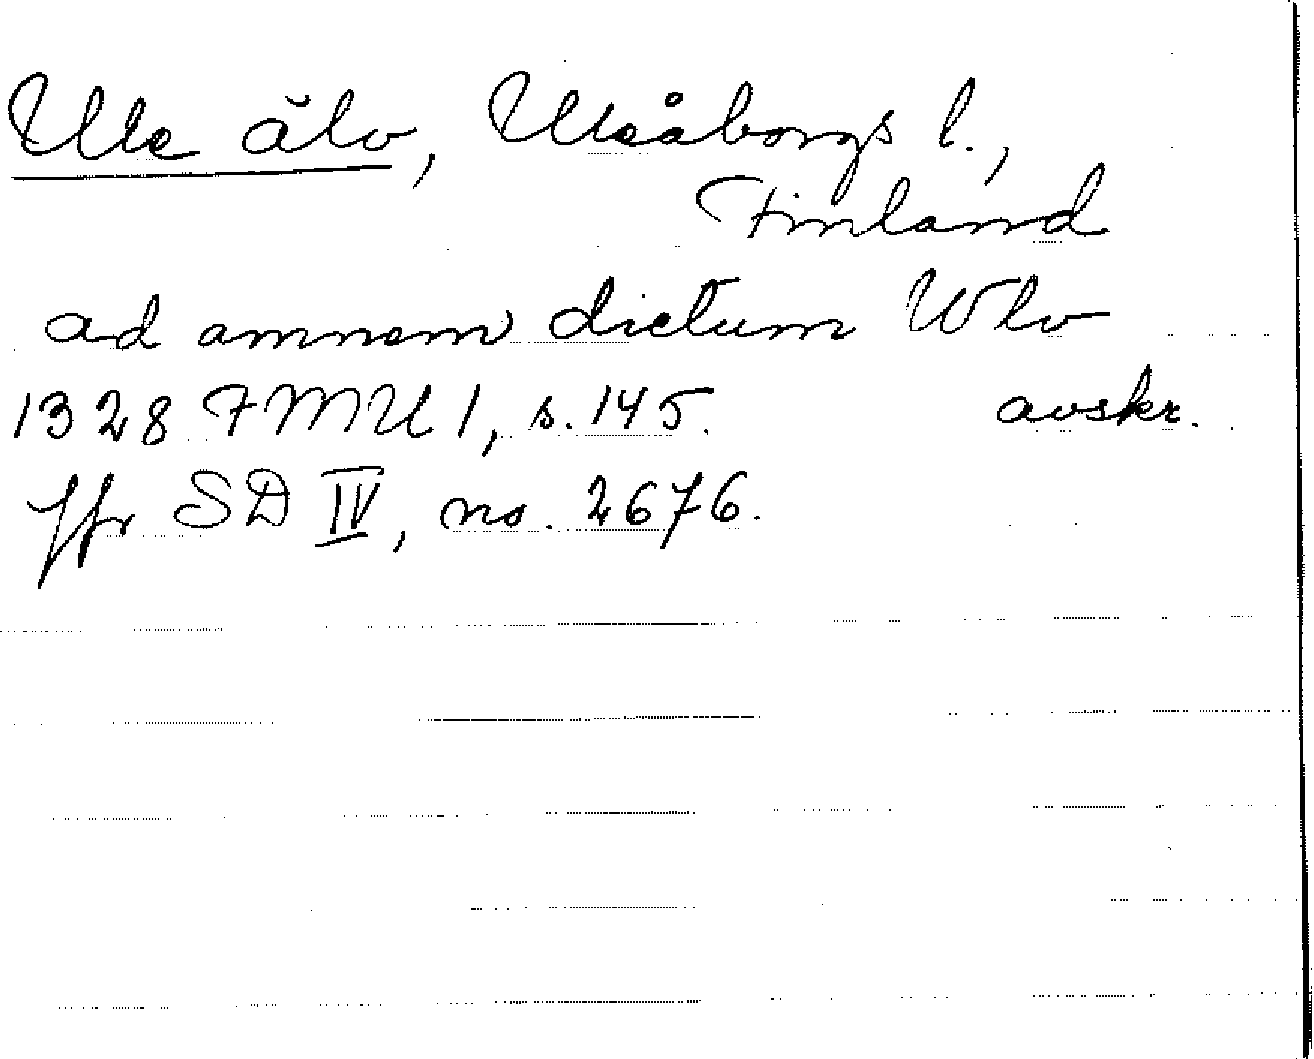 Ule älv, Uleåborgs l.,
Finland
ad amnem dictum Wlv
1328 FMU 1, s. 145. avskr.
Jfr SD IV, no. 2676.